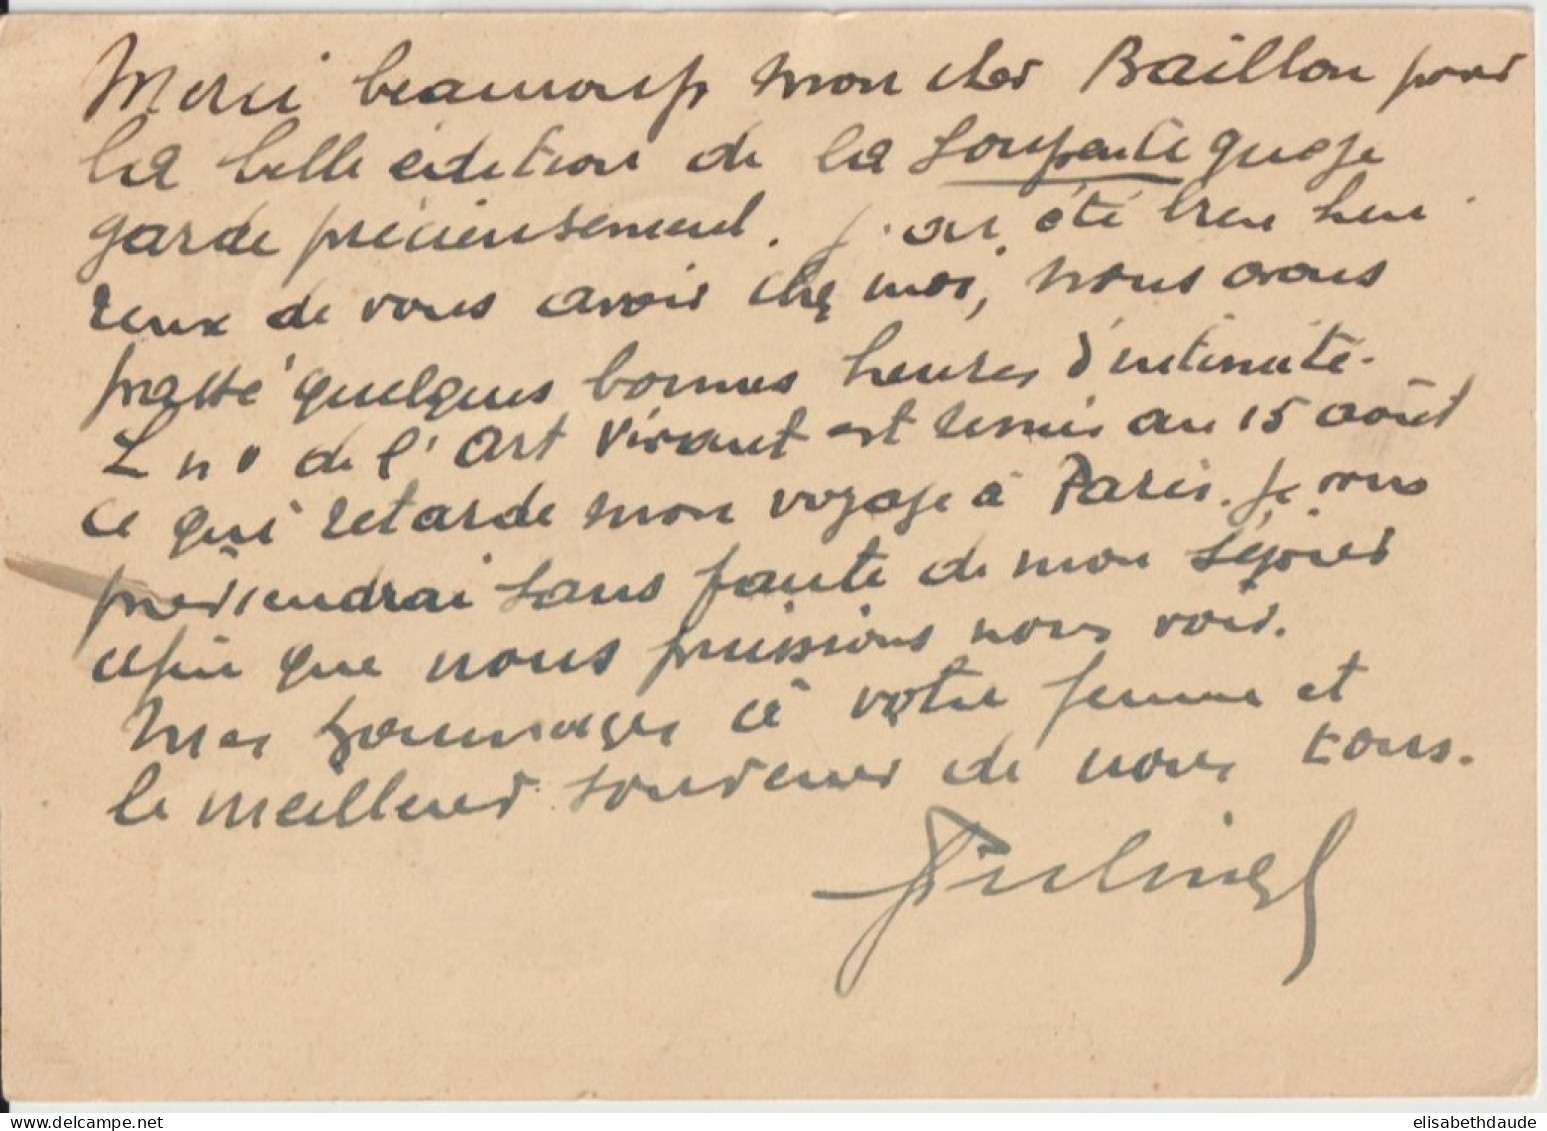 Merci beaucoup mon cher Baillon pour
la belle édition de la Soupente que je
garde précieusement. J'ai été bien heu
reux de vous avoir chez moi, nous avons
passé quelques bonnes heures d'intimité.
L n° de l'Art Vivant est remis au 15 août
ce qui retarde mon voyage à Paris. Je vous
préviendrai sans faute de mon séjour
afin que nous puissions nous voir.
Mes hommages à votre femme et
le meilleur souvenir de nous tous.
elisabethdaude